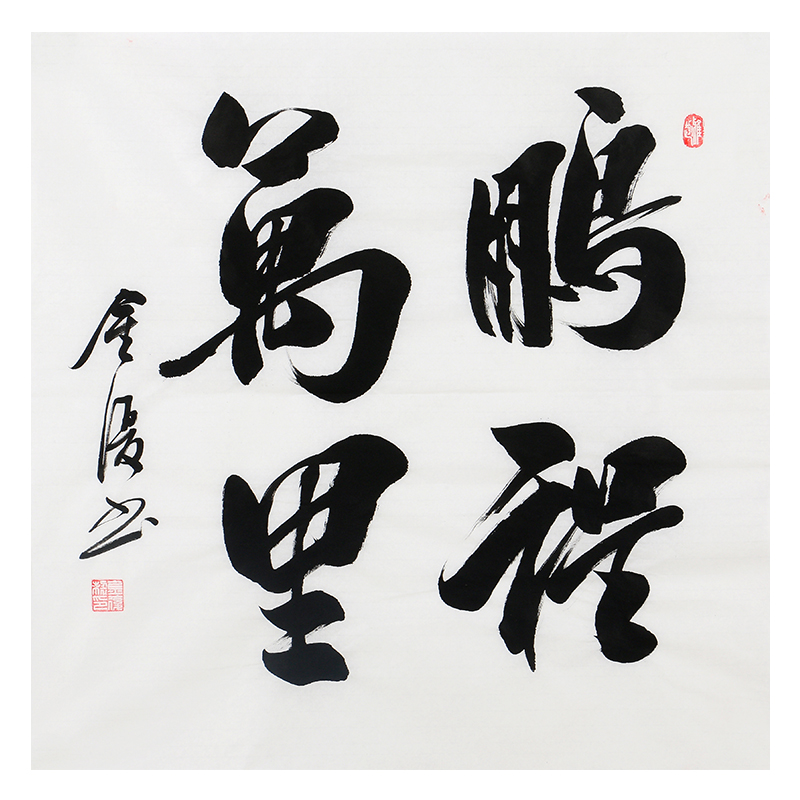 鵬程
萬里
金優书